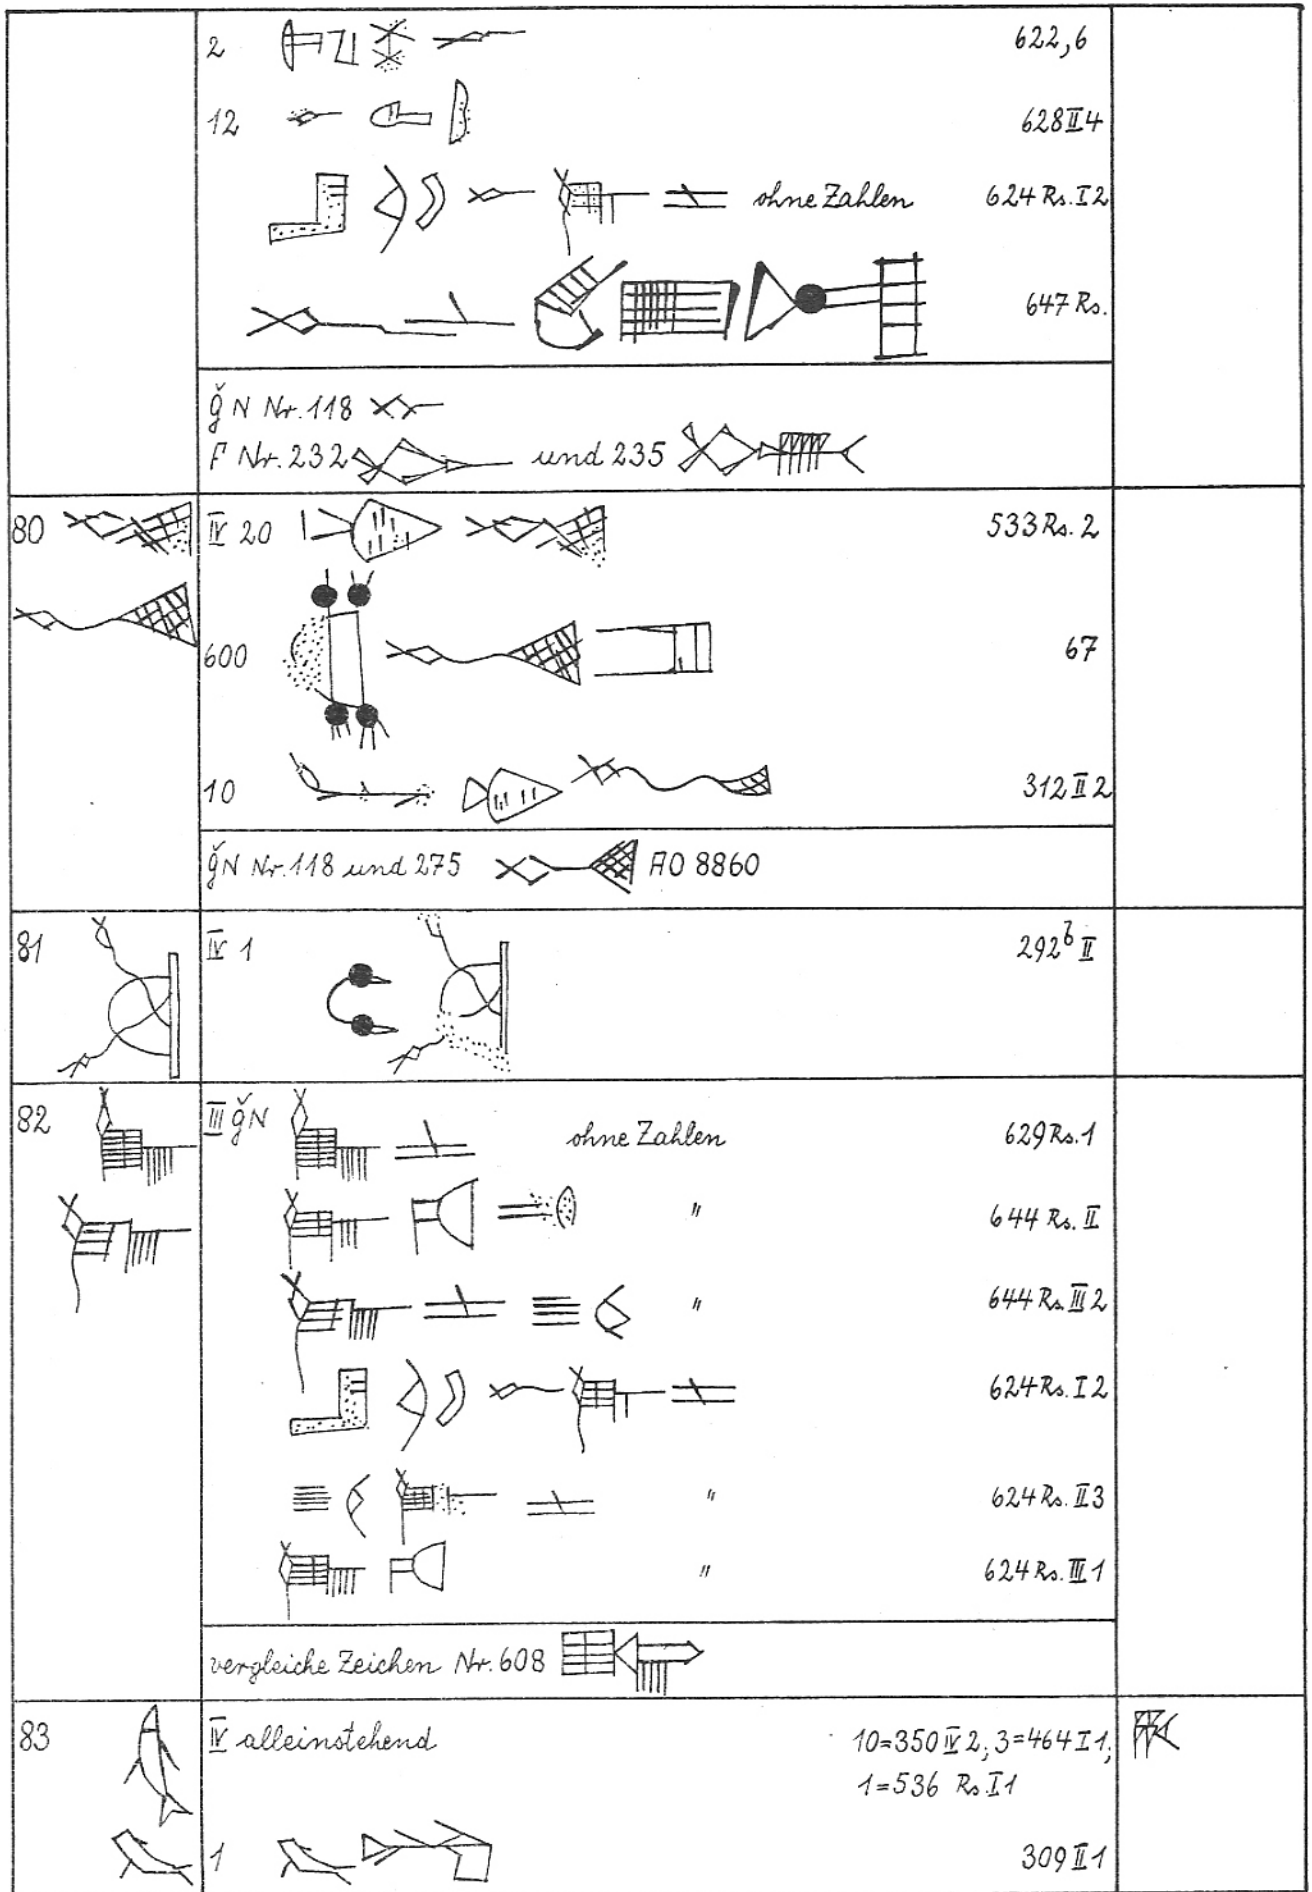 2 622,6
12 628 II 4
ohne Zahlen 624 Rs. I 2
647 Rs.
ǧN Nr. 118
F Nr. 232 und 235
80 IV 20 533 Rs. 2
600 67
10 312 II 2
ǧN Nr. 118 und 275 AO 8860
81 IV 1 292b II
82 III ǧN ohne Zahlen 629 Rs. 1
" 644 Rs. II
" 644 Rs. III 2
624 Rs. I 2
" 624 Rs. II 3
" 624 Rs. III 1
vergleiche Zeichen Nr. 608
83 IV alleinstehend 10=350 IV 2; 3=464 I 1;
1=536 Rs. I 1
1 309 II 1